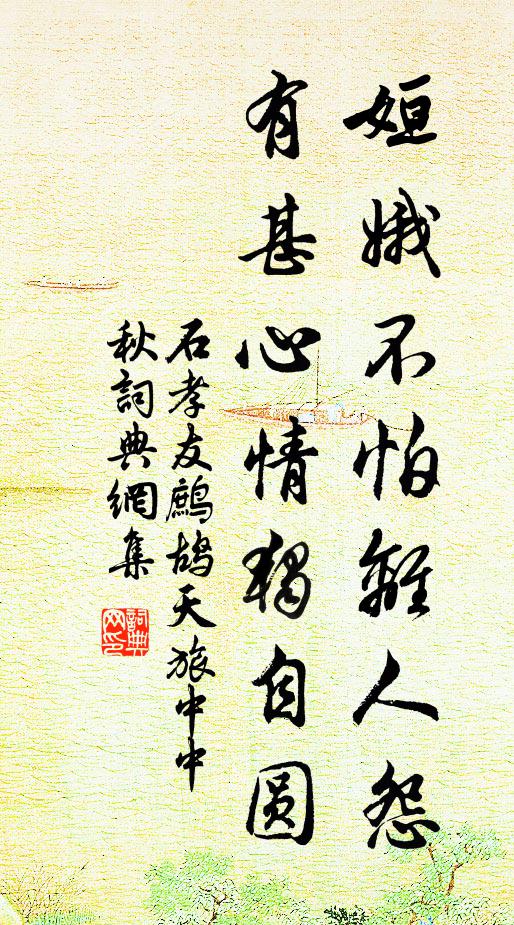 姮娥不怕離人怨
有甚心情獨自圓
石孝友鷓鴣天旅中中
秋詞典網集
詞典
网印